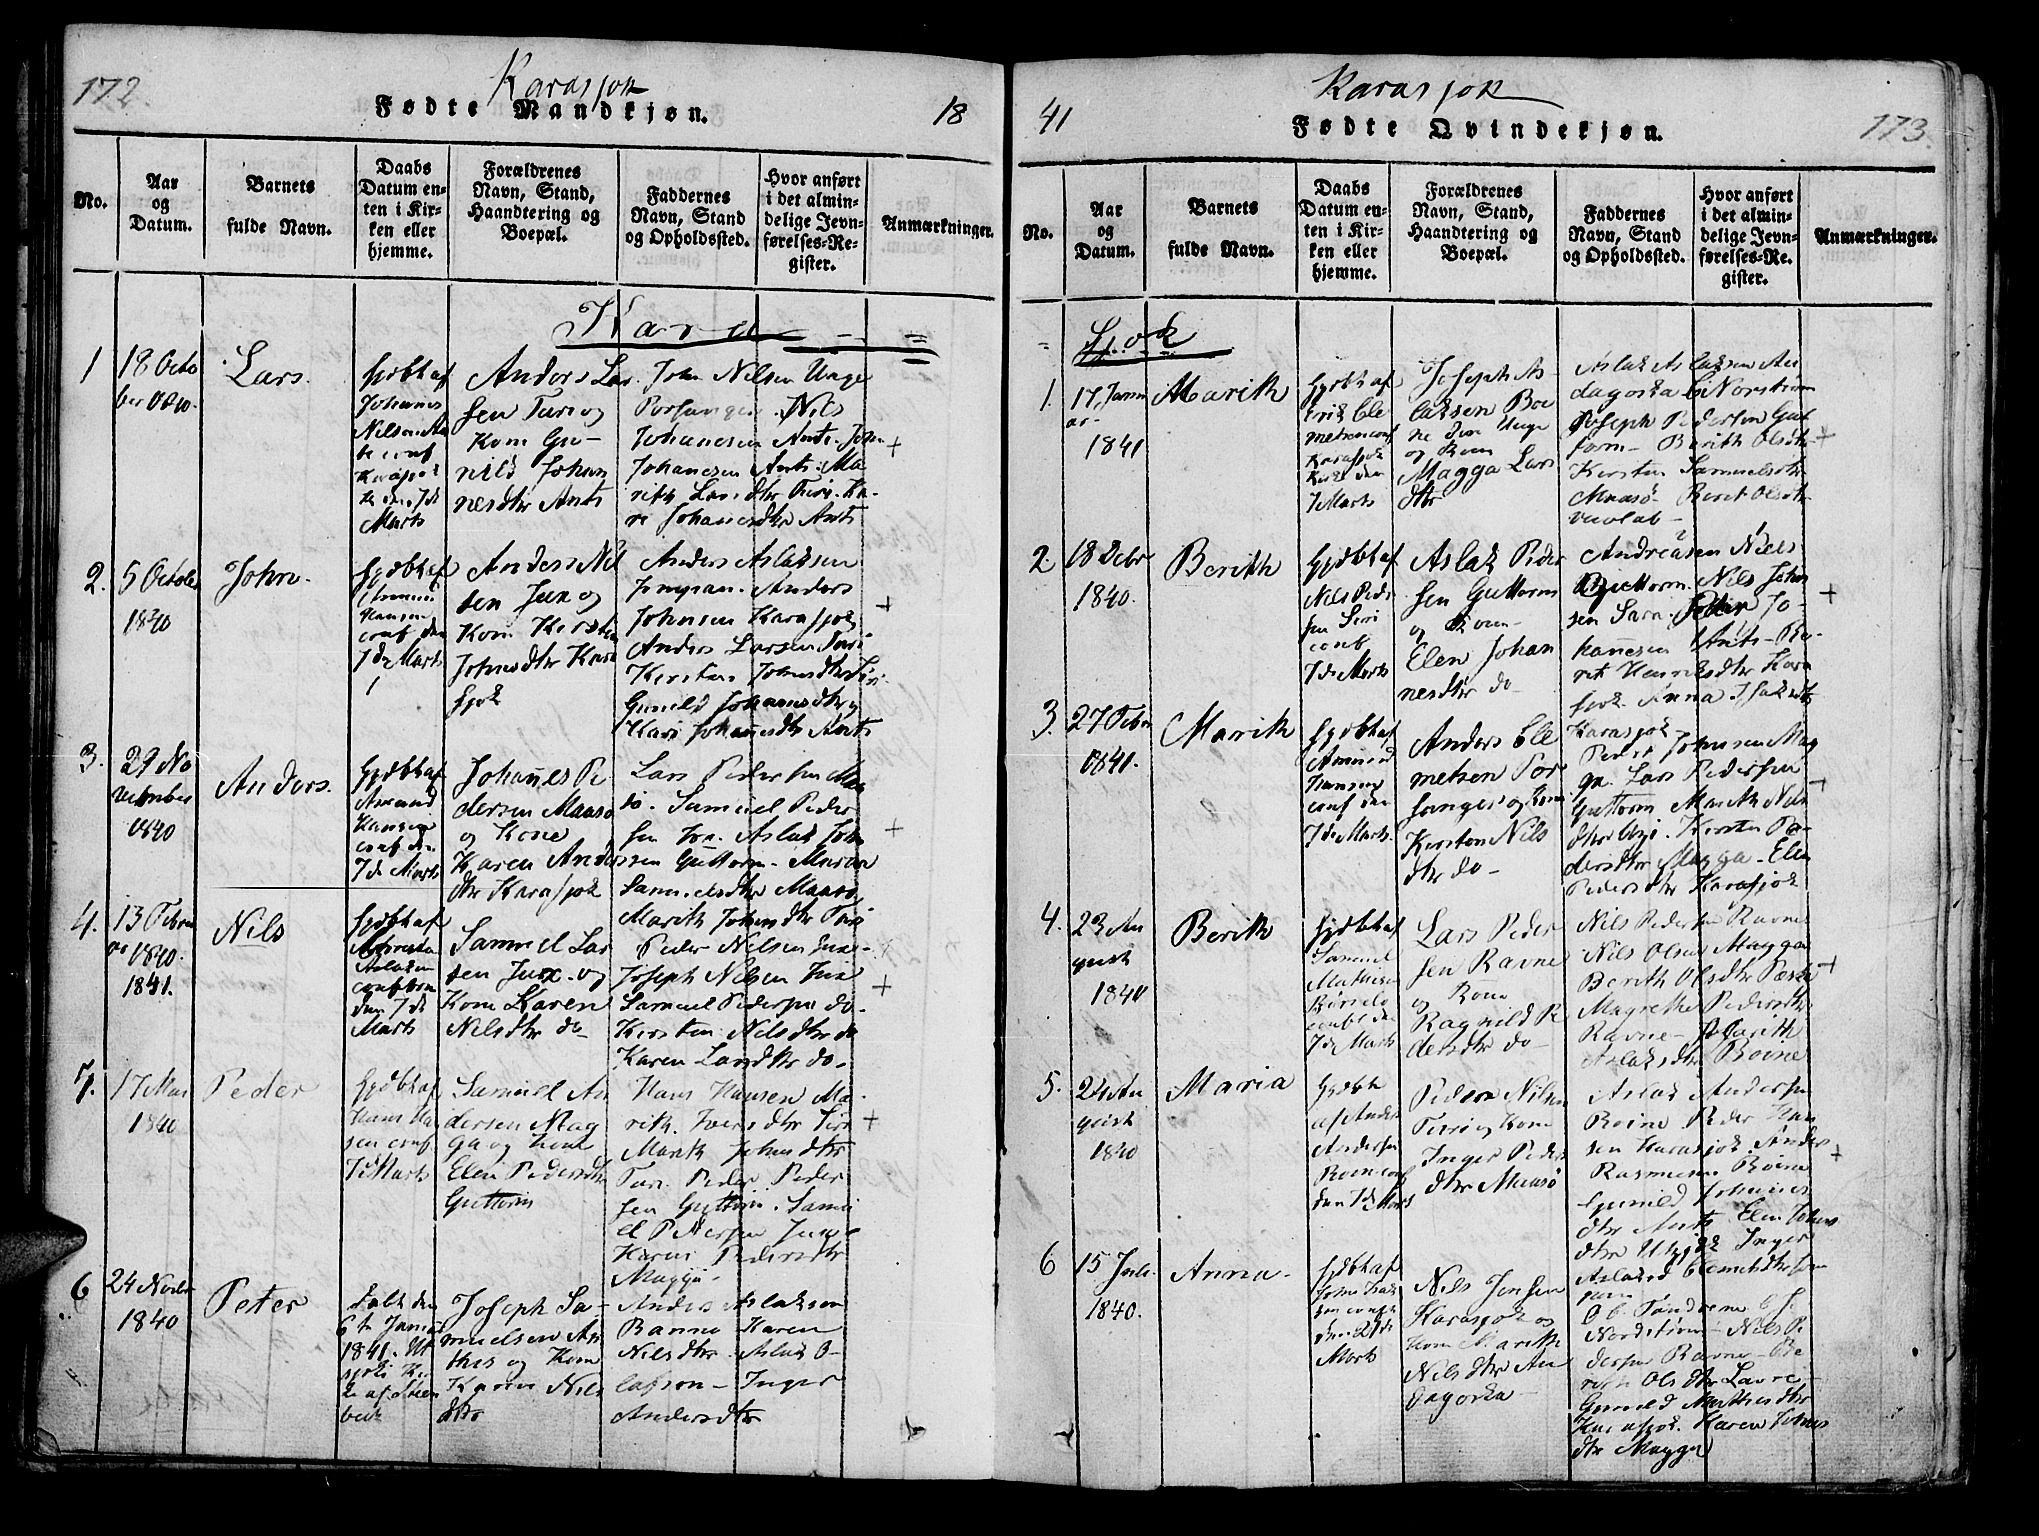 172.
Karasjok
Fødte Mandkjøn.
18
No.
Aar
og
Datum.
Barnets
fulde Navn.
Daabs
Datum en-
ten i Kir-
ken eller
hjemme.
Forældrenes
Navn, Stand,
Haandtering og
Boepæl.
Faddernes
Navn, Stand
og Opholdssted.
Hvor anført
i det almin-
delige Jevn-
førelses-Re-
gister.
Anmærkninger.
Kara
1
18 Octo
ber
Lars.
hjdbt af
Johanes
Nilsen
conf
Karasjok
k den 7 de
Marts
Anders Lar
sen Turi og
Kone Gu-
nild Johan
nesdtr Anti
John Nilsen Unge
Porsanger. Nils
Johanesen Anti. John
Johanesen Anti. Ma
rith Larsdtr Turi. Ka-
ri Johanesdtr Anti
+
2.
5 Octobe
1840
John.
hjdbt af
Hansen
conf den
7 de Marts
Anders Nil
sen Jux og
Kone Kirsten
Johnsdtr Kara
sjok
Anders Aslaksen
Anders
Johnsen Karasjok
Anders Larsen Turi
Kirsten Johnsdtr Siri
Gunild Johanesdtr
Kari Johanesdtr Anti
+
3.
29 No
vember
1840
Anders.
hjdbt af
Amund
Hansen
conf den
7 de Marts
Johanes Pe
dersen Maaso
og Kone
Karen Anders
dtr Karasjok
Lars Pedersen Maa
sö. Samuel Peder
sen Aslak John
sen Guttorm. Maren
Samuelsdtr Maasø
Marith Johnsdtr Turi
+
4.
13 Febru
ar 1840.
1841.
Nils
hjdbt af
Aslaksen
conf
den 7 de
Marts
Samuel Lar
sen Jux. og
Kone Karen
Nilsdtr do
Peder Nilsen
Joseph Nilsen
Samuel Pedersen do.
Kirsten Nilsdtr do
Karen Larsdtr do-
+
7.
17 Mai
1840
Peder
hjdbt af
Hans Ha
sen conf
7 d Marts
Samuel An
dersen Mag
ga og Kone
Elen Pedersdtr
Guttorm
Hans Hansen Ma-
rith. Iversdtr Siri
Marith Johnsdtr
Turi. Peder Peder
sen Guttorm. Samu
el Pedersen
Karen Pedersdtr
Magga-
+
6
24 Novbr
1840
Peter
Døbt den
6 te Januar
1841. Ut
sjoki Kir
ke af Steen
beck
Joseph Sa-
muelsen An
this og Kone
Karen Nils
dtr
Anders Aslaksen
Banne Karen
Nilsdtr. Aslak O-
lafson- Inger
Andersdtr
41
Karasjok
Fødte Qvindekjøn.
173.
No.
Aar
og
Datum.
Barnets
fulde Navn.
Daabs
Datum en-
ten i Kir-
ken eller
hjemme.
Forældrenes
Navn, Stand,
Haandtering og
Boepæl.
Faddernes
Navn, Stand
og Opholdssted.
Hvor anført
i det almin-
delige Jevn-
førelses-Re-
gister.
Anmærkninger.
Sjok
1.
17 Janu
ar-
1841
Marith
hjdbt af
Erik Cle
metsen conf
Karasjok
Kirke den
7 Marts
Joseph As-
laksen Boi
ne
og Kone
Magga Lars
dtr
Aslak Aslaksen An
dagorka C Norstrøm
Joseph Pedersen Gut
torm- Berith Olsdtr
Kirsten Samuelsdtr
Maasö- Beret Olsdtr
+
2.
18 Debr
1840.
Berith
hjdbt af
Nils Peder
sen Siri
conf
7 de Marts
Aslak Peder
sen Guttorm
og Kone-
Elen Johan
nesdtr do-
Andreasen Niels
Guttorm. Nils John
sen Sara Peder Jo-
hanesen Anti- Be-
ret Henriksdtr Kara
sjok. Anna Isaksdtr
Karasjok-
+
3.
27 Febr
1841.
Marith
hjdbt af
Amund
Hansen
conf den
7 de Marts
Anders Cle
metsen Por
sanger og Kone
Kirsten Nils
dtr do-
Peder Johnsen Mag
ga. Lars Pedersen
Guttorm Marith Nils
dtr Kirsten Pe-
dersdtr Magga- Elen
Pedersdtr Karasjok
+
4.
23 Au
gust
1840
Berith
hjdbt af
Samuel
Mathisen
conft den
7 de Marts
Lars Peder
sen Ravne
og Kone
Ragnild Pe
dersdtr do-
Nils Pedersen Ravne
Nils Olsen Magga
Berith Olsdtr
Magrethe Pedersdtr
Ravne- Marith
Aslaksdtr Boine
+
5.
24 Au
gust
1840
Maria
hjdbt
af Anders
Andersen
Boin conf
den 7 de Marts
Pedere Nilsen
Turi og Kone
Inger Peder
dtr Maasö
Aslak Andersen
Boine Peder Han
sen Karasjok. Anders
Rasmusen Boine
Gunild Johanes
dtr Anti. Elen Johns
dtr Utzjok Inger
Aslaksd Clemetsdtr
+
6
15 Juli.
1840.
Anna-
hjdbt af
John Isak
sen conft
den 21 de
Marts
Nils Jensen
Karasjok og
Kone Marith
Nilsdtr An
dagorka-
Nordstrøm- Nils Pe
dersen Ravne- Be-
reth Olsdtr Lavre-
Gunild Mathisdtr
Karasjok. Karen Johns
dtr Magga